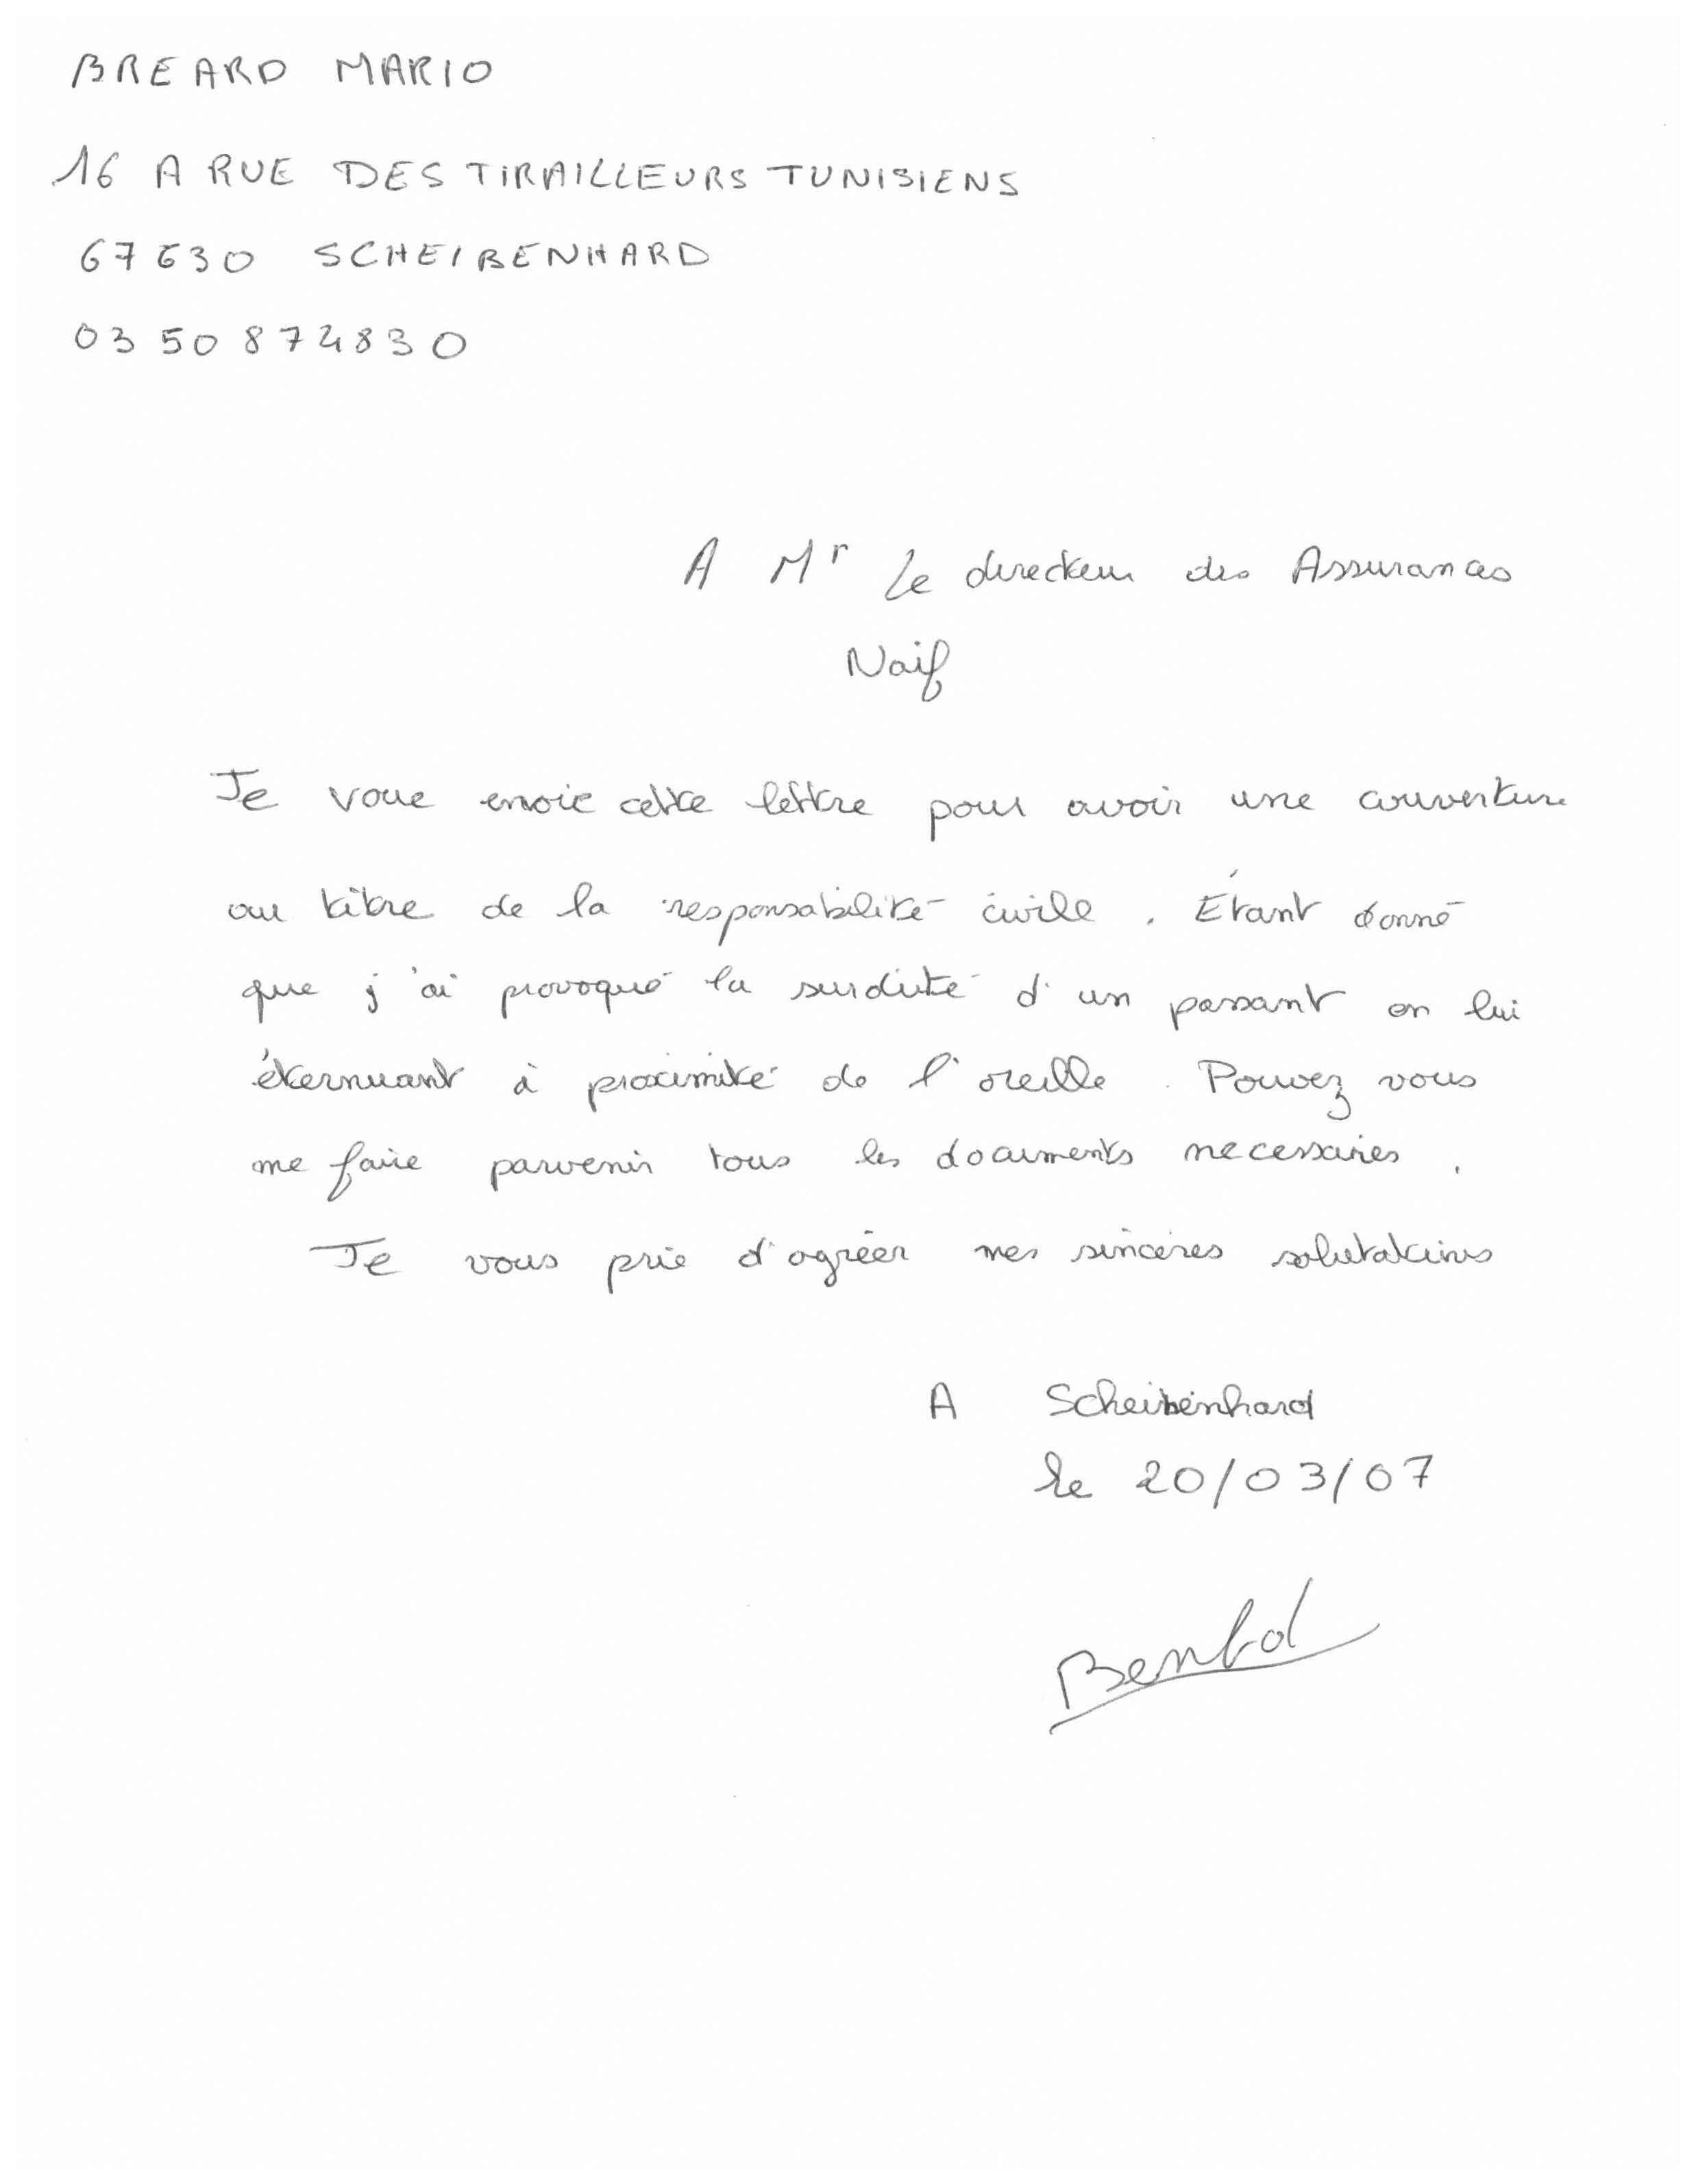 BREARD MARIO
16 A RUE DES TIRAILLEURS TUNISIENS
67630 SCHEIBENHARD
03 50 87 48 30
A Mr Le directeur des Assurances
Naif
Je vous envoie cette lettre pour avoir une couverture
au titre de la responsabilité civile. Étant donné
que j'ai provoqué la surdité d'un passant en lui
éternuant à proximité de l'oreille. Pouvez vous
me faire parvenir tous les documents necessaires.
Je vous prie d'agréer mes sincères salutations
A Scheibenhard
le 20/03/07